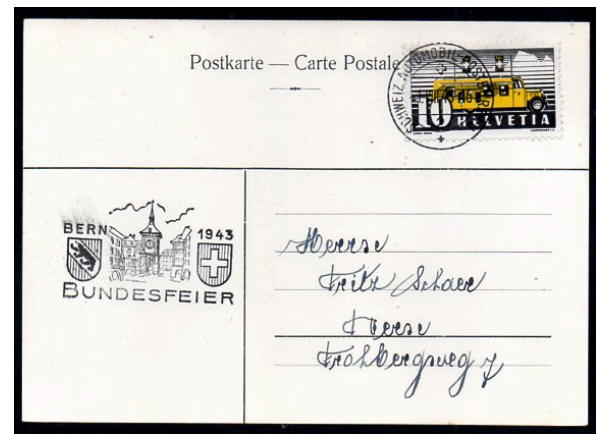 Postkarte — Carte Postale
SCHWEIZ. AUTOMOBIL-POSTBUREAU
10 HELVETIA
BERN 1943
BUNDESFEIER
Herrn
Fritz Schaer
Bern
Frohbergweg 7